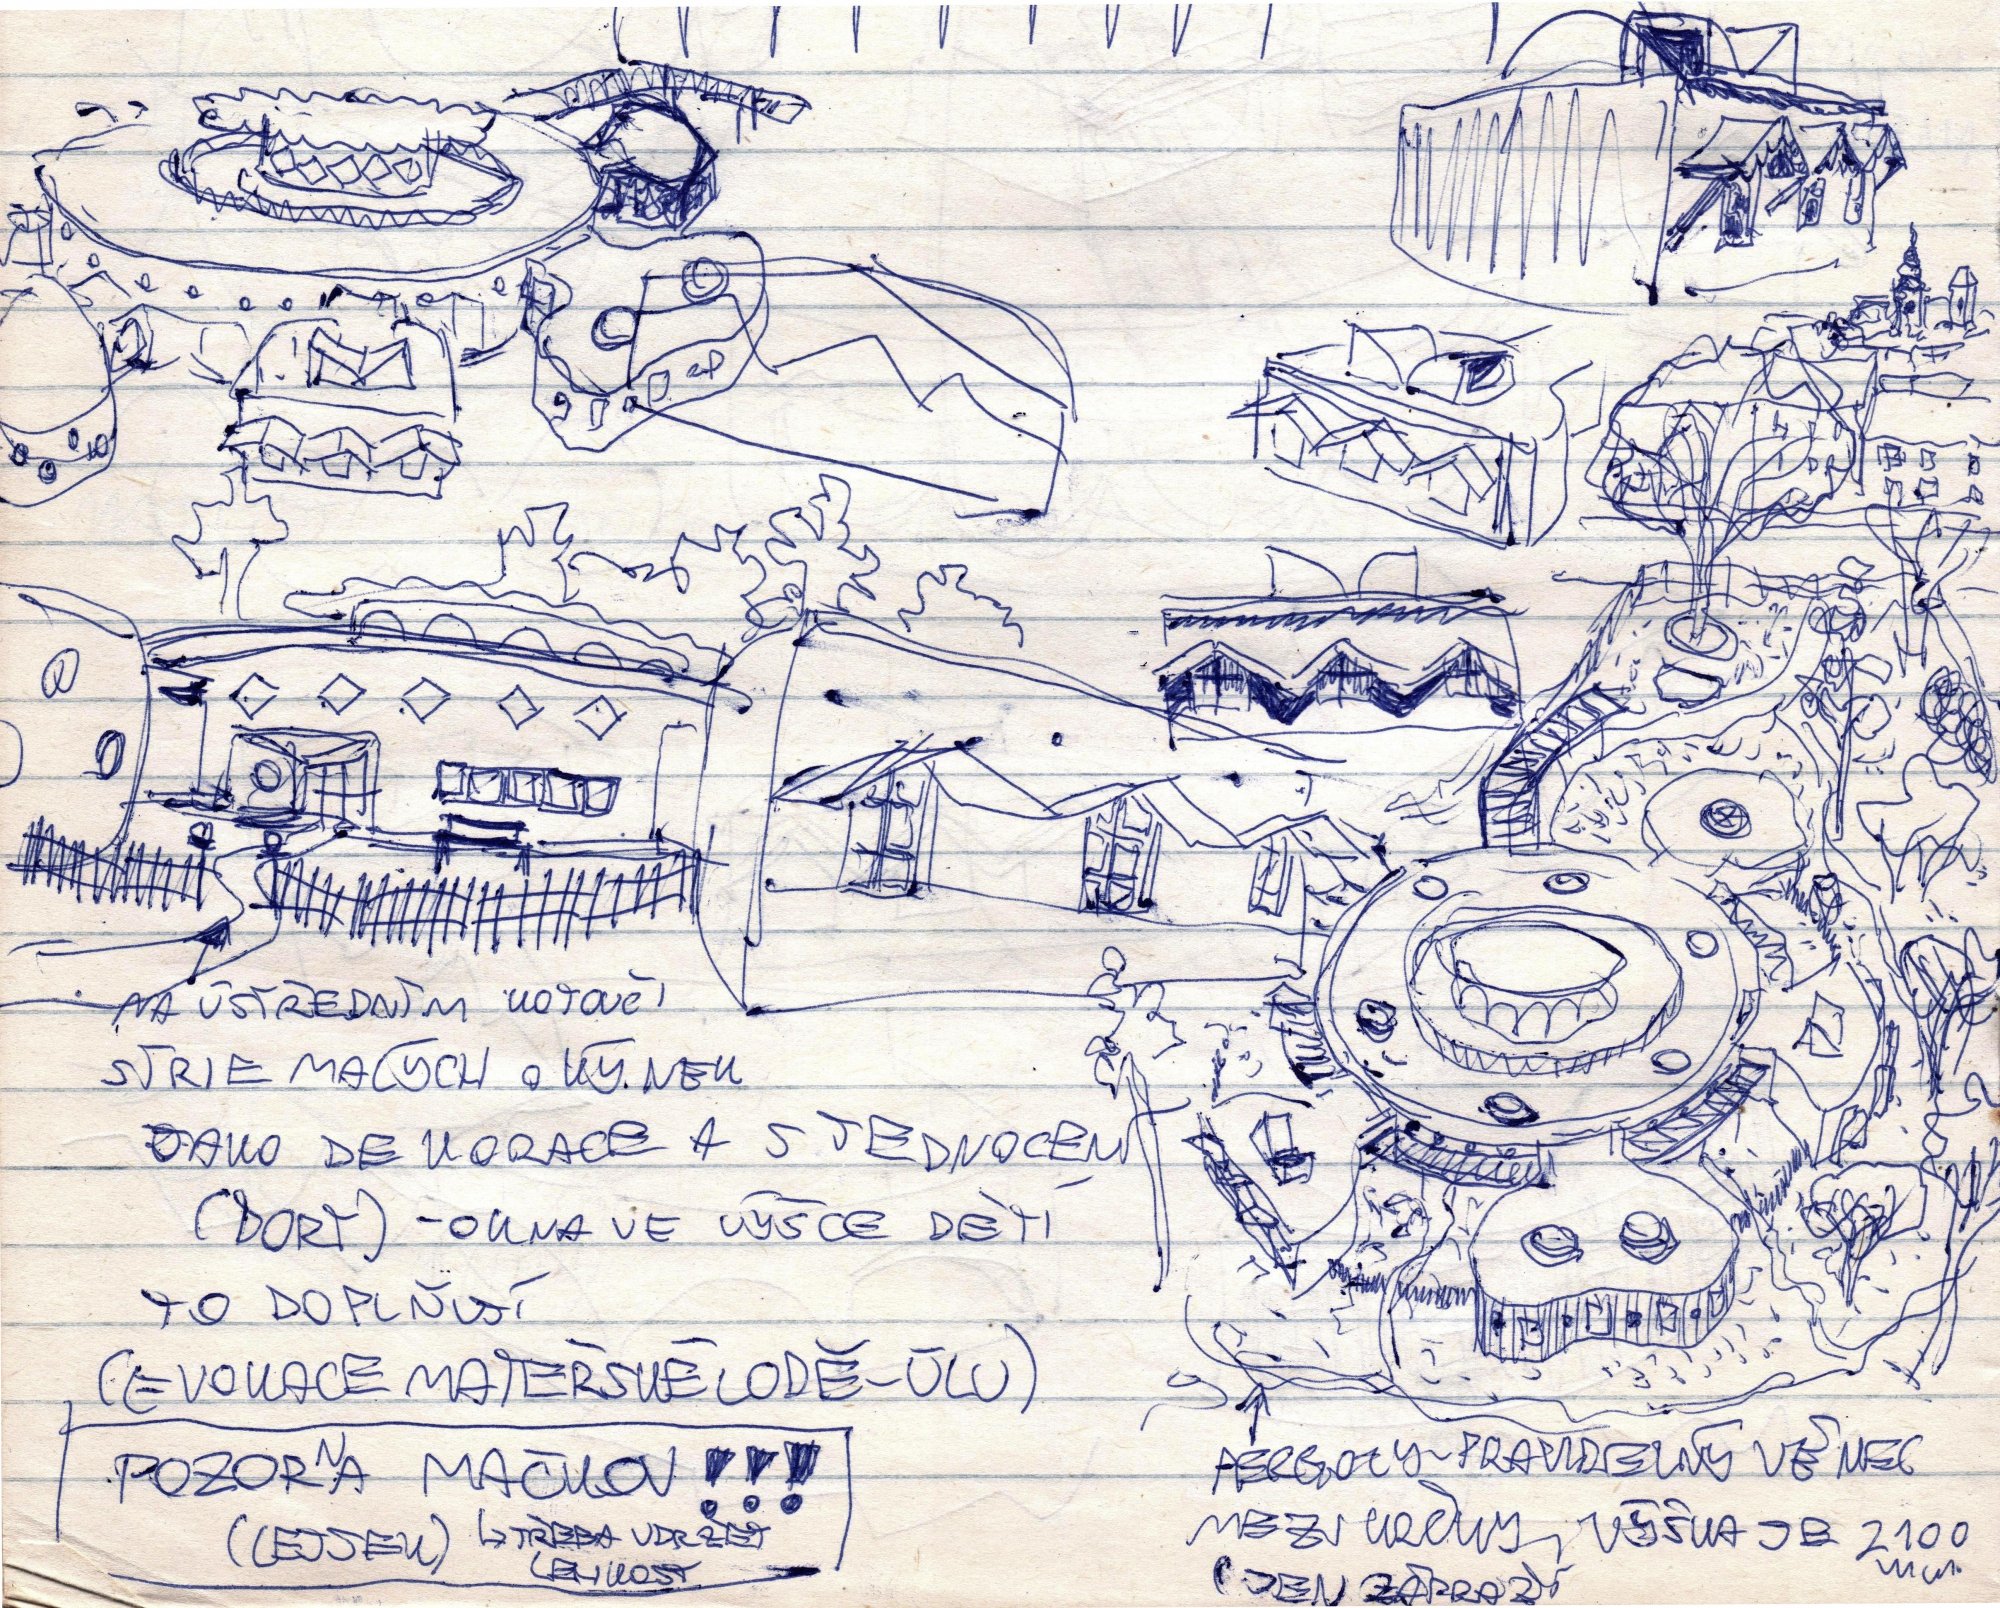 NA ÚSTŘEDNÍM KOTOUČI
SÉRIE MALÝCH OKÝNEK
JAKO DEKORACE A SJEDNOCENÍ
(DORT) - OKNA VE VÝŠCE DĚTÍ
TO DOPLŇUJÍ
(EVOKACE MATEŘSKÉ LODĚ - ÚLU)
POZOR NA MAČKOV !!!
(LEJSEK) ↳ TŘEBA UDRŽET
LEHKOST
PERGOLY - PRAVIDELNÝ VĚNEC
MEZI KOČKY, VÝŠKA JE 2100
mm.
(JEN ZÁPRAŽÍ